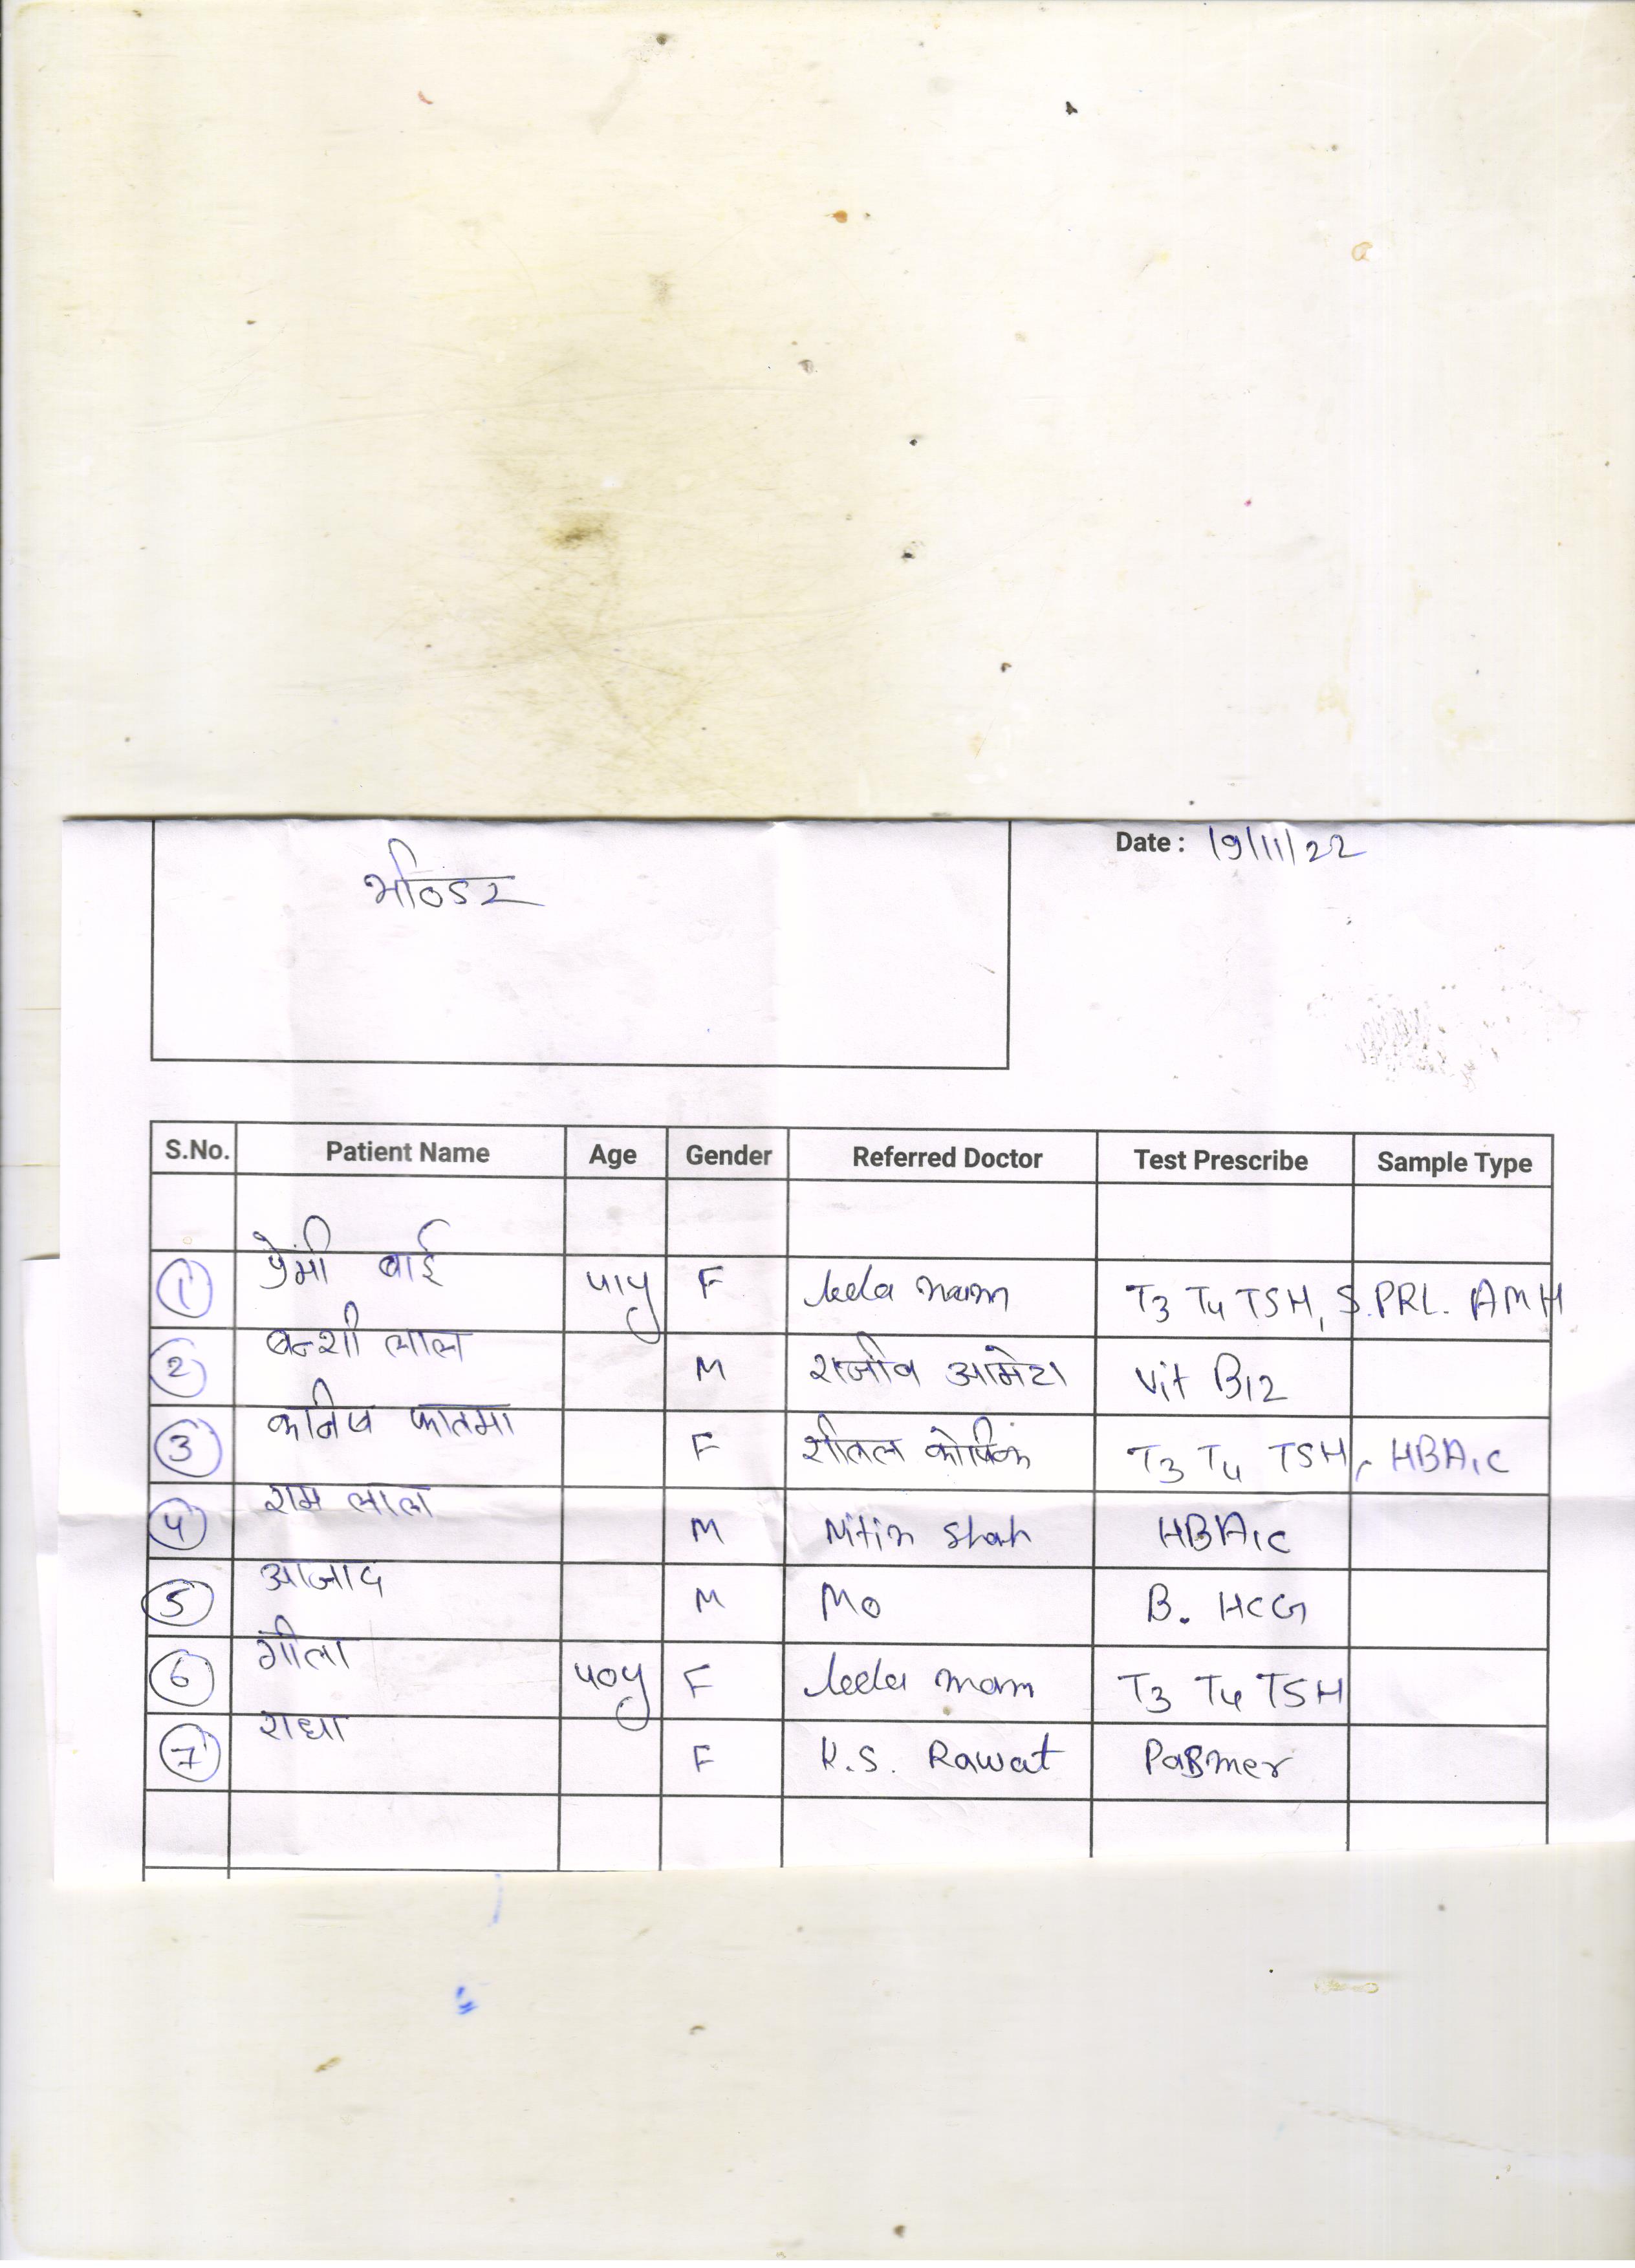 Date : 19/11/22
भीण्डर
S.No. Patient Name Age Gender Referred Doctor Test Prescribe Sample Type
1 प्रेमी बाई 41y F leela mam T3 T4 TSH, S.PRL. AMH
2 बन्शी लाल M राजीव आमेटा Vit B12
3 कनिज फातमा F शीतल कौषिक T3 T4 TSH, HBA1C
4 राम लाल M Nitin Shah HBA1C
5 आजाद M Mo B. HCG
6 गीता 40y F leela mam T3 T4 TSH
7 राधा F K.S. Rawat